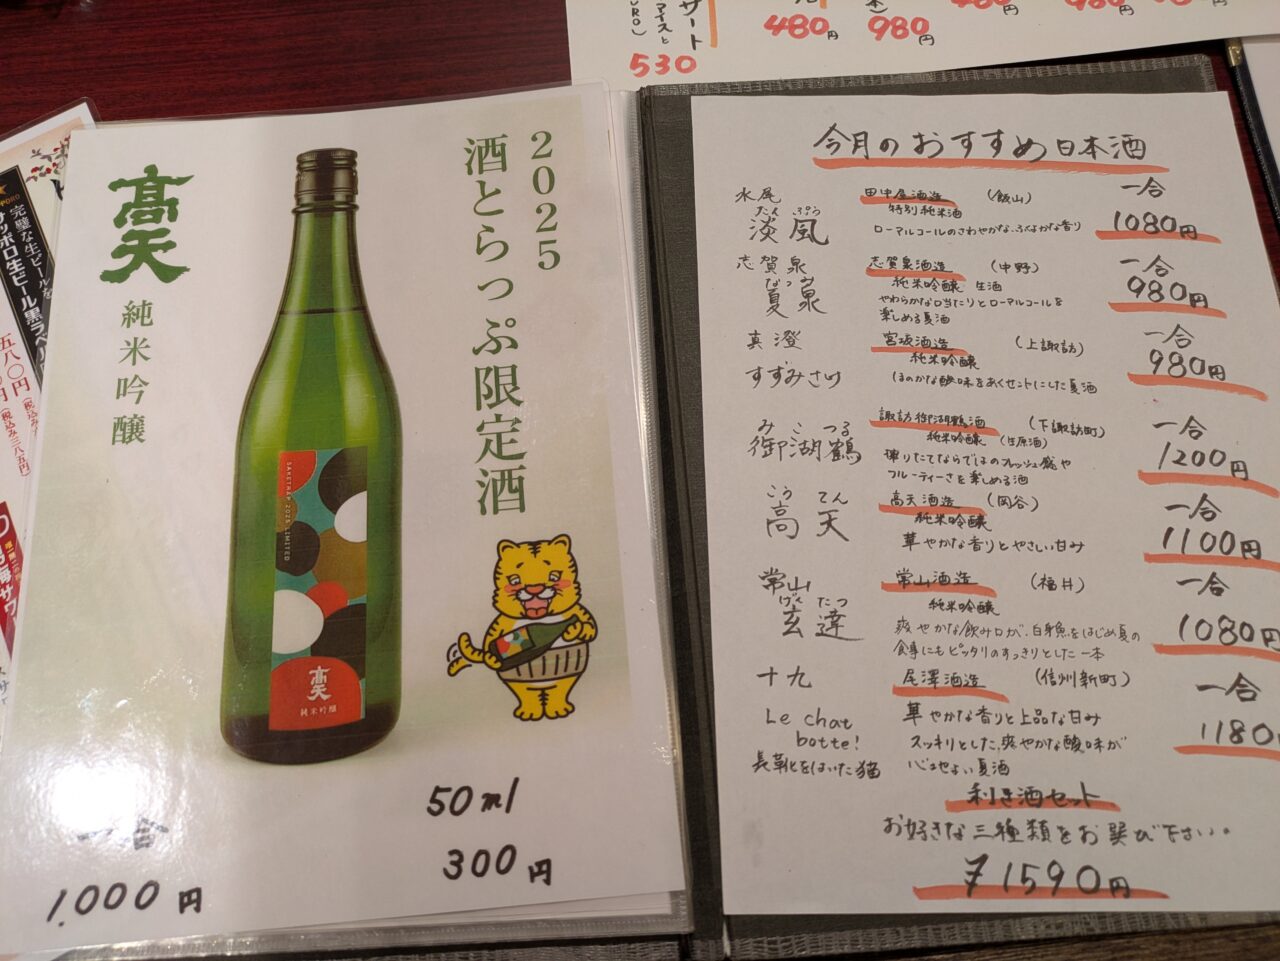 高天
純米吟醸
2025
酒とらっぷ限定酒
SAKETRAP 2025 LIMITED
高天
純米吟醸
一合
1.000円
50ml
300円
今月のおすすめ日本酒
水尾
たんぷう
淡風
田中屋酒造 (飯山)
特別純米酒
ローアルコールのさわやかな、ふくよかな香り
一合
1080円
志賀泉
なつみ
夏泉
志賀泉酒造 (中野)
純米吟醸 生酒
やわらかな口当たりとローアルコールを
楽しめる夏酒
一合
980円
真澄
すずみさけ
宮坂酒造 (上諏訪)
純米吟醸
ほのかな酸味をあくセントにした夏酒
一合
980円
みこつる
御湖鶴
諏訪御湖鶴酒造 (下諏訪町)
純米吟醸 (生原酒)
搾りたてならではのフレッシュ感や
フルーティーさを楽しめる酒
一合
1200円
こうてん
高天
高天酒造 (岡谷)
純米吟醸
華やかな香りとやさしい甘み
一合
1100円
常山
げんたつ
玄達
常山酒造 (福井)
純米吟醸
爽やかな飲み口が、白身魚をはじめ夏の
食事にもピッタリのすっきりとした一本
一合
1080円
十九
Le chat
botte!
長靴をはいた猫
尾澤酒造 (信州新町)
華やかな香りと上品な甘み
スッキリとした、爽やかな酸味が
心地よい夏酒
一合
1180円
利き酒セット
お好きな三種類をお選び下さい。
¥1590円
480円
980円
530
デザート
アイスと
完璧な生ビールを
サッポロ生ビール黒ラベル
五八〇円
(税込み三八五円)